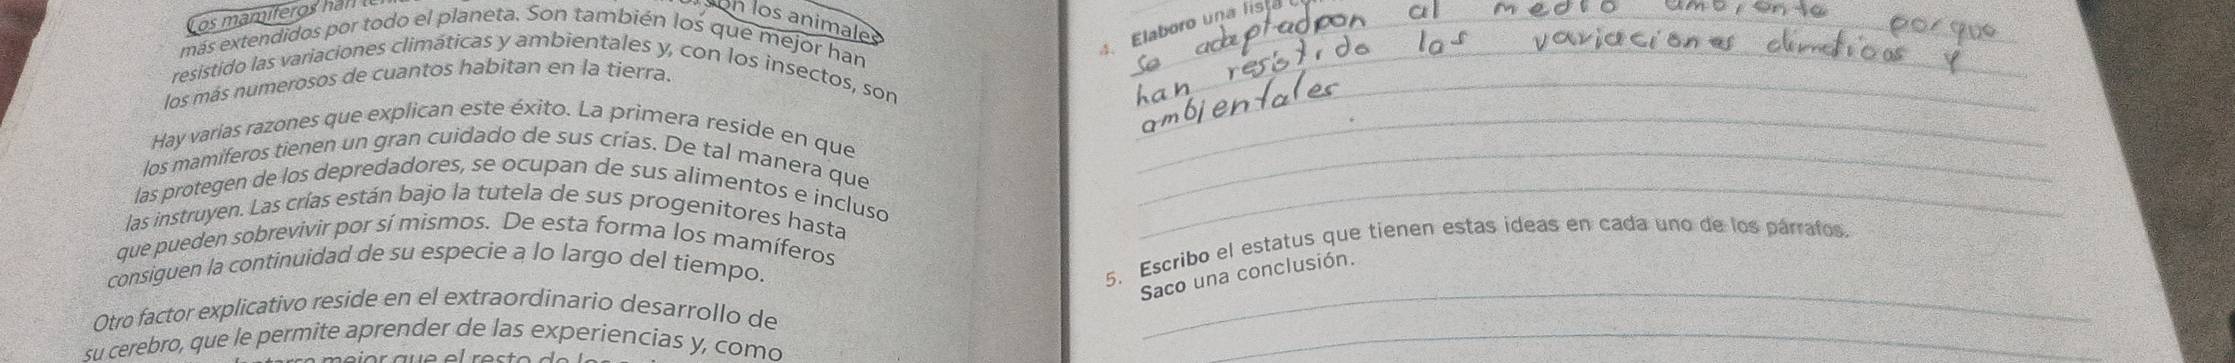 Los mamíferos han
son los animales
más extendidos por todo el planeta. Son también los que mejor han
resistido las variaciones climáticas y ambientales y, con los insectos, son
los más numerosos de cuantos habitan en la tierra.
Hay varias razones que explican este éxito. La primera reside en que
los mamíferos tienen un gran cuidado de sus crías. De tal manera que
las protegen de los depredadores, se ocupan de sus alimentos e incluso
las instruyen. Las crías están bajo la tutela de sus progenitores hasta
que pueden sobrevivir por sí mismos. De esta forma los mamíferos
consiguen la continuidad de su especie a lo largo del tiempo.
Otro factor explicativo reside en el extraordinario desarrollo de
su cerebro, que le permite aprender de las experiencias y, como
mejor que el resto de
4. Elaboro una lista
se adaptadpon al medio ambiente porque
han resistido las variaciones climaticas y
ambientales
5. Escribo el estatus que tienen estas ideas en cada uno de los párrafos.
Saco una conclusión.